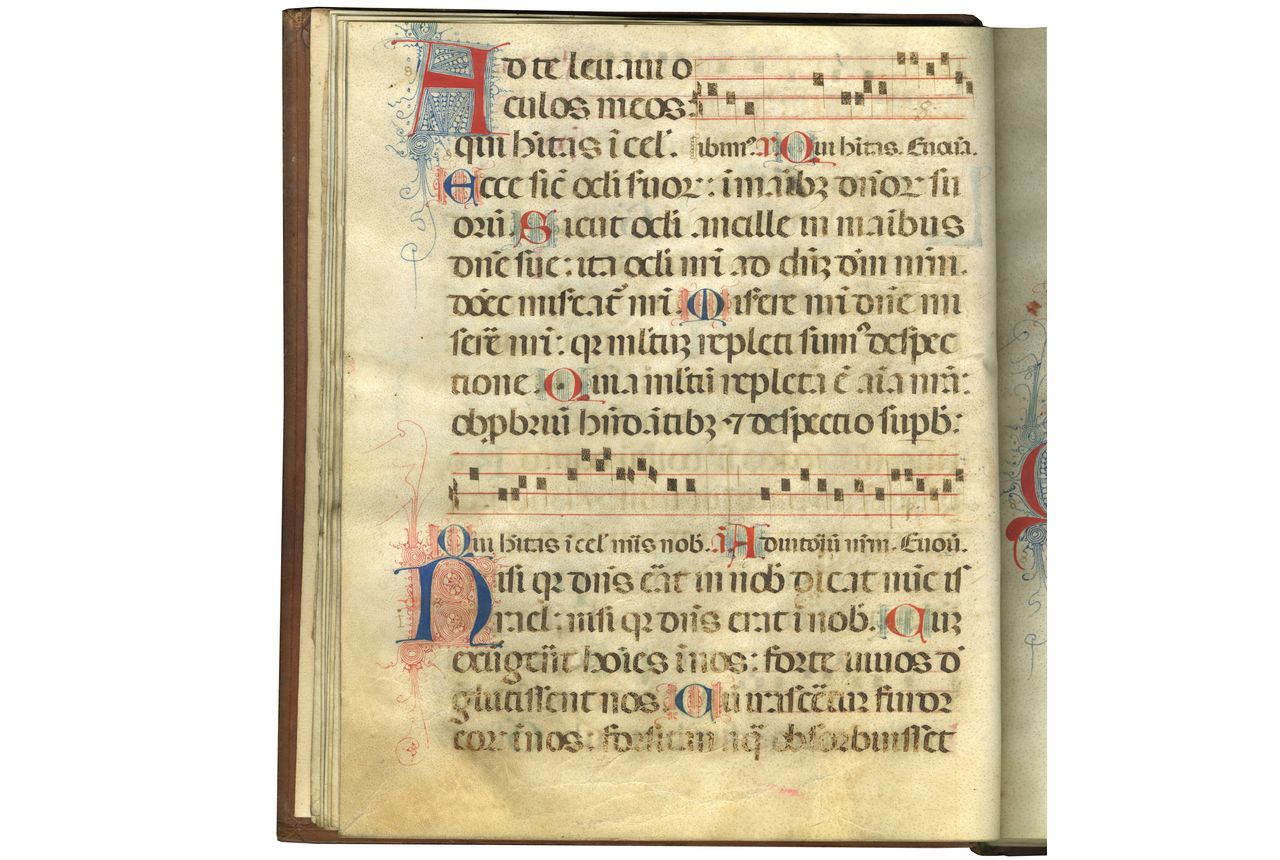 Ad te leuaui o
culos meos:
qui hĩtas ĩ cel'. ibimꝰ. Qui hĩtas. Euouã.
Ecce sic̃ ocl̃i suoꝝ: ĩ mãibꝫ dñoꝝ su
oꝝũ. Sicut ocl̃i ancille in mãibus
dñe sue: ita ocl̃i nr̃i ad dñꝫ dñm nr̃m.
dõec mise͛at᷑ nr̃i. Misere nr̃i dñe mi
serẽ nr̃i: qꝛ ml̃tuꝫ repleti sumꝰ despec
tione. Quia ml̃tũ repleta ẽ aĩa nr̃a:
obpbriũ hũdãtibꝫ ⁊ despectio supb̃:
Qui hĩtas ĩ cel' mĩs nob̃. ã Adiutoriũ nr̃m. Euouã.
Nisi qꝛ dñs ẽat in nob̃ dicat nũc is
rael: nisi qꝛ dñs erat ĩ nob̃. Cuꝫ
exurge͛nt hoĩes ĩ nos: forte uiuos d̃
glutissent nos. Cũ irascẽtur furor
eoꝝ ĩ nos: forsitan aq̃ obsorbuisset